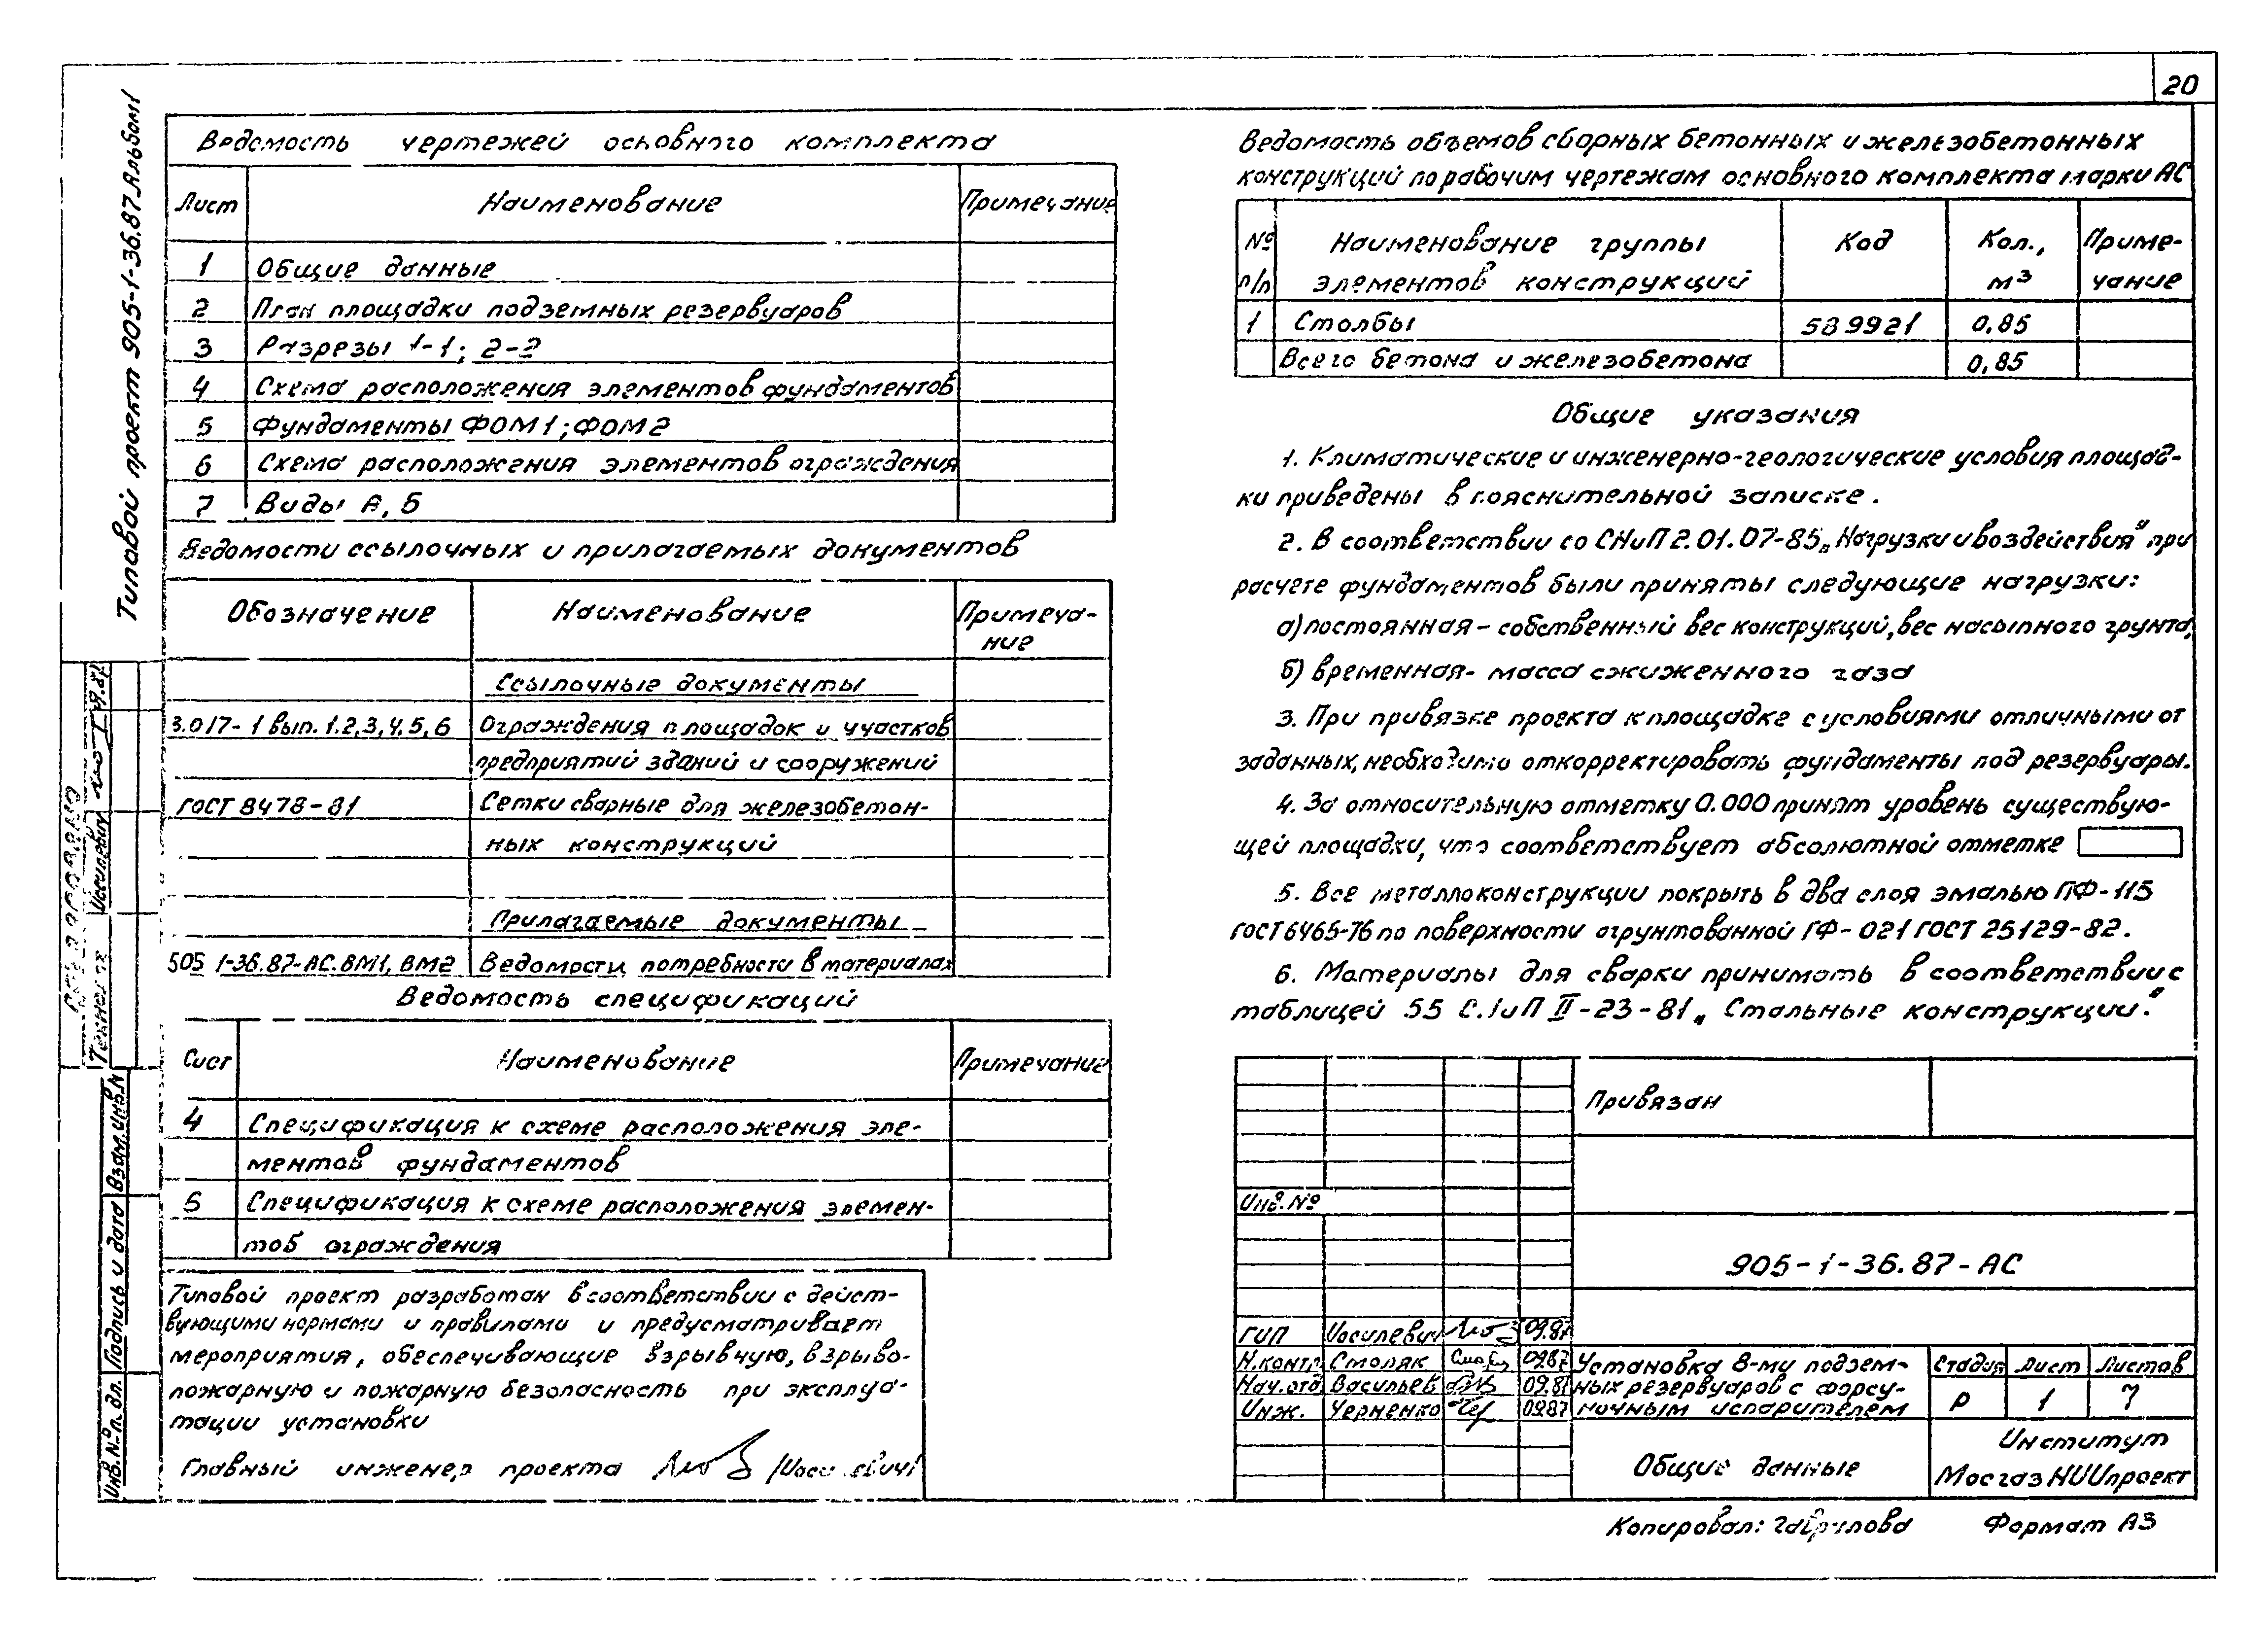 20
Типовой проект 905-1-36.87 Альбом 1
Ведомость чертежей основного комплекта
Лист Наименование Примечание
1 Общие данные
2 План площадки подземных резервуаров
3 Разрезы 1-1; 2-2
4 Схема расположения элементов фундаментов
5 Фундаменты ФОМ1; ФОМ2
6 Схема расположения элементов ограждения
7 Виды А, Б
Ведомости ссылочных и прилагаемых документов
Обозначение Наименование Примеча-
ние
Ссылочные документы
3.017-1 вып. 1.2,3,4,5,6 Ограждения площадок и участков
предприятий зданий и сооружений
ГОСТ 8478-81 Сетки сварные для железобетон-
ных конструкций
Прилагаемые документы
505 1-36.87-АС.ВМ1, ВМ2 Ведомости потребности в материалах
Ведомость спецификаций
Лист Наименование Примечание
4 Спецификация к схеме расположения эле-
ментов фундаментов
5 Спецификация к схеме расположения элемен-
тов ограждения
Типовой проект разработан в соответствии с дейст-
вующими нормами и правилами и предусматривает
мероприятия, обеспечивающие взрывную, взрыво-
пожарную и пожарную безопасность при эксплуа-
тации установки
Главный инженер проекта /Иосилевич/
Ведомость объемов сборных бетонных и железобетонных
конструкций по рабочим чертежам основного комплекта марки АС
№ Наименование группы Код Кол., Приме-
п/п элементов конструкций м³ чание
1 Столбы 589921 0,85
Всего бетона и железобетона 0,85
Общие указания
1. Климатические и инженерно-геологические условия площад-
ки приведены в пояснительной записке.
2. В соответствии со СНиП 2.01.07-85 „Нагрузки и воздействия" при
расчете фундаментов были приняты следующие нагрузки:
а) постоянная - собственный вес конструкций, вес насыпного грунта,
б) временная - масса сжиженного газа
3. При привязке проекта к площадке с условиями отличными от
заданных, необходимо откорректировать фундаменты под резервуары.
4. За относительную отметку 0.000 принят уровень существую-
щей площадки, что соответствует абсолютной отметке
5. Все металлоконструкции покрыть в два слоя эмалью ПФ-115
ГОСТ 6465-76 по поверхности огрунтованной ГФ-021 ГОСТ 25129-82.
6. Материалы для сварки принимать в соответствии с
таблицей 55 СНиП II-23-81 „Стальные конструкции."
Привязан
Инв.№
905-1-36.87-АС
ГИП Иосилевич 09.87
Н.контр. Смоляк 09.87
Нач.отд Васильев 09.87
Инж. Черненко 09.87
Установка 8-му подзем-
ных резервуаров с форсу-
ночным испарителем
Стадия Лист Листов
Р 1 7
Общие данные
Институт
МосгазНИИпроект
Копировал: Гаврилова Формат А3
Технолог Иосилевич
Взам.инв.N
Подпись и дата
Инв.№ п. дл.